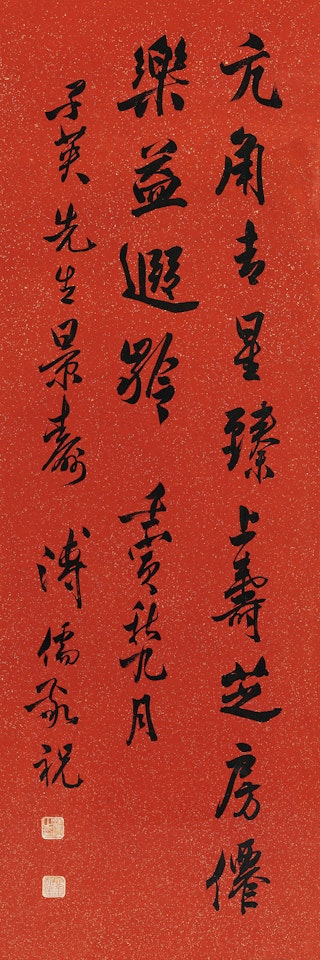 亢角吉星臻上壽芝房僊
樂益遐齡　壬寅秋九月
子英先生景壽　溥儒敬祝